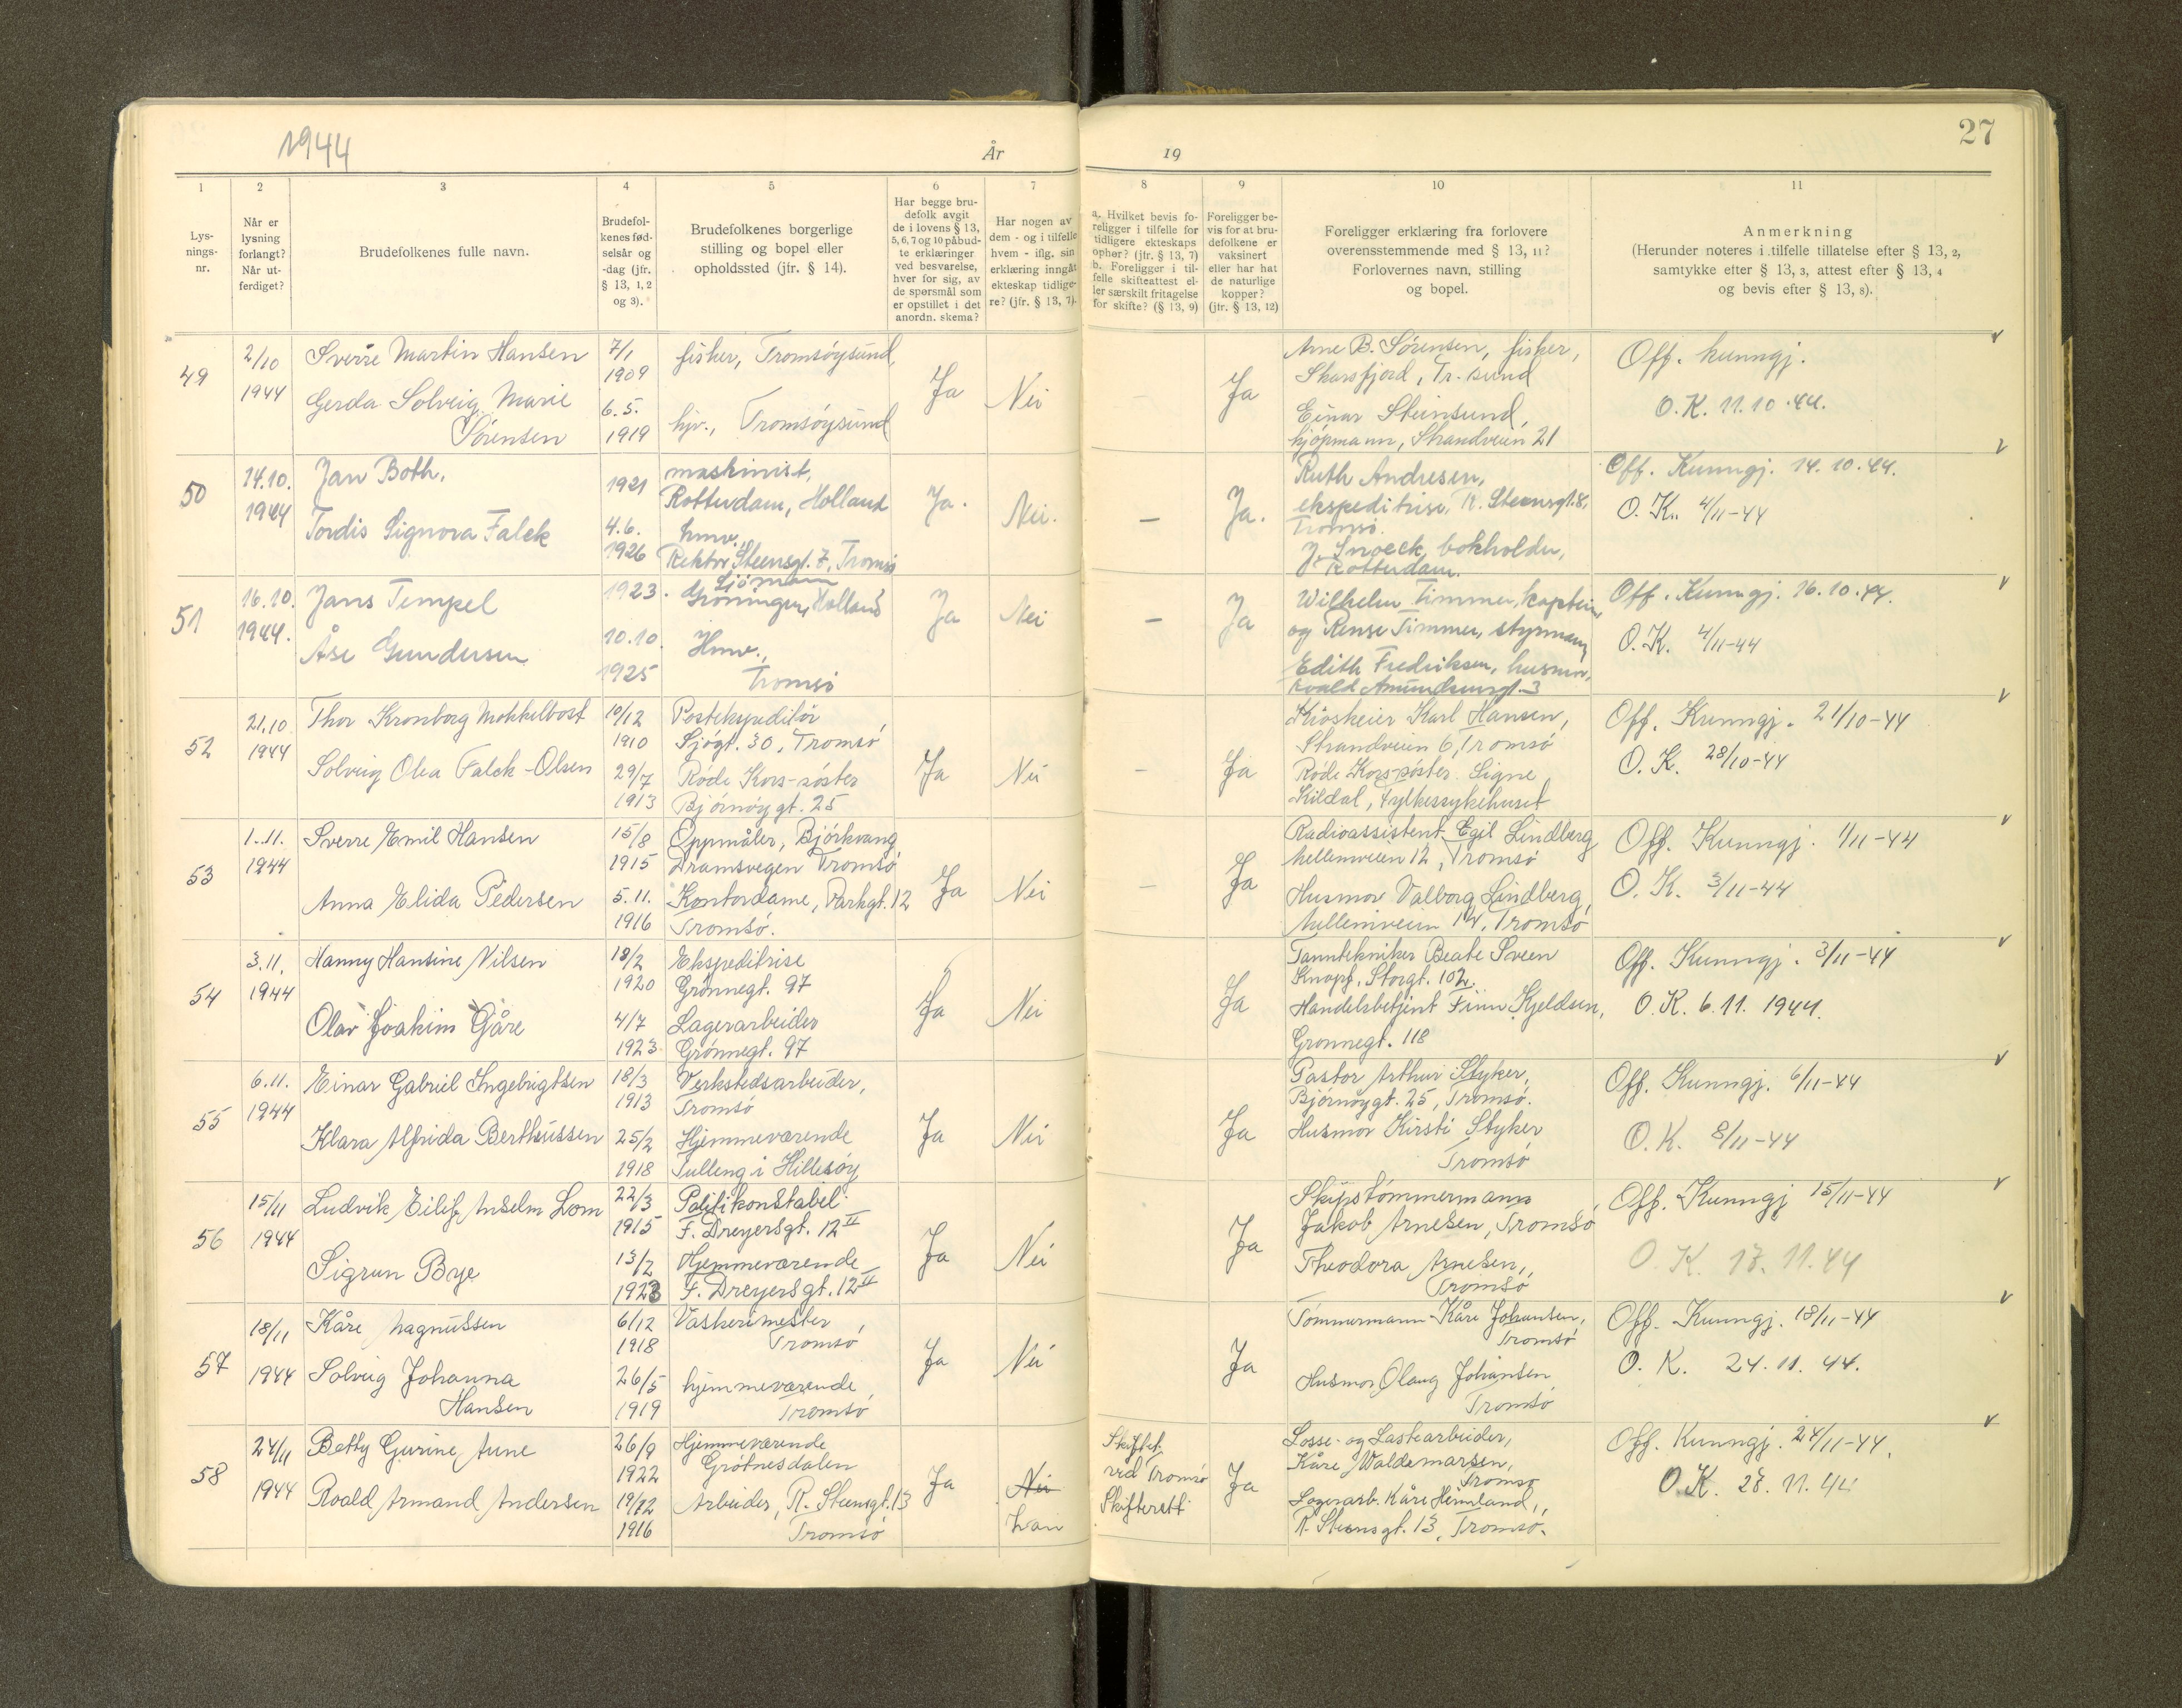 1944
År
19
27
1
2
3
4
5
6
7
8
9
10
11
Lys-
nings-
nr.
Når er
lysning
forlangt?
Når ut-
ferdiget?
Brudefolkenes fulle navn.
Brudefol-
kenes fød-
selsår og
-dag (jfr.
§ 13, 1, 2
og 3).
Brudefolkenes borgerlige
stilling og bopel eller
opholdssted (jfr. § 14).
Har begge bru-
defolk avgit
de i lovens § 13,
5, 6, 7 og 10 påbud-
te erklæringer
ved besvarelse,
hver for sig, av
de spørsmål som
er opstillet i det
anordn. skema?
Har nogen av
dem - og i tilfelle
hvem - iflg. sin
erklæring inngåt
ekteskap tidlige-
re? (jfr. § 13, 7).
a. Hvilket bevis fo-
religger i tilfelle for
tidligere ekteskaps
ophør? (jfr. § 13, 7)
b. Foreligger i til-
felle skifteattest el-
ler særskilt fritagelse
for skifte? (§ 13, 9)
Foreligger be-
vis for at bru-
defolkene er
vaksinert
eller har hat
de naturlige
kopper?
(jfr. § 13, 12)
Foreligger erklæring fra forlovere
overensstemmende med § 13, 11?
Forlovernes navn, stilling
og bopel.
Anmerkning
(Herunder noteres i tilfelle tillatelse efter § 13, 2,
samtykke efter § 13, 3, attest efter § 13, 4
og bevis efter § 13, 8).
49
2/10
1944
Sverre Martin Hansen
Gerda Solveig Marie
Sørensen
7/1
1909
6.5.
1919
fisker, Tromsøysund,
hjv., Tromsøysund
Ja
Nei
Ja
Arne B. Sørensen, fisker,
Skarsfjord, Tr.sund
Einar Steinsund,
kjøpmann, Strandveien 21
Off. kunngj.
O.K. 11.10.44.
50
14.10.
1944
Jan Both.
Tordis Signora Falck
1921
4.6.
1926
maskinist,
Rotterdam, Holland
hmv.,
Rektor Steensgt. 7, Tromsø
Ja.
Nei.
—
Ja.
Ruth Andresen,
ekspeditrise, R. Steensgt. 8,
Tromsø.
J. Snoeck, bokholder,
Rotterdam.
Off. Kunngj. 14.10.44.
O.K. 4/11-44
51
16.10.
1944.
Jans Tempel
Åse Gundersen
1923.
10.10.
1925
Sjömann
Groningen, Holland
Hmv.,
Tromsø
Ja
Nei
—
Ja
Wilhelm Timmer, kaptein,
og Rense Timmer, styrmann
Edith Fredriksen, husmor,
Roald Amundsensgt. 3
Off. Kunngj. 16.10.44.
O.K. 4/11-44
52
21.10
1944
Thor Kronborg Mokkelbost
Solveig Olea Falck-Olsen
10/12
1910
29/7
1913
Postekspeditör
Sjøgt. 30, Tromsø
Røde Kors-søster
Bjørnøygt. 25
Ja
Nei
—
Ja
Kioskeier Karl Hansen,
Strandveien 6, Tromsø
Røde Kors søster Signe
Kildal, Fylkessykehuset
Off. Kunngj. 21/10-44
O.K. 28/10-44
53
1.11.
1944
Sverre Emil Hansen
Anna Elida Pedersen
15/8
1915
5.11.
1916
Oppmåler, Bjørkvang
Dramsvegen Tromsø
Kontordame, Parkgt. 12
Tromsø.
Ja
Nei
—
Ja
Radioassistent Egil Lindberg
Mellemveien 12, Tromsø
Husmor Valborg Lindberg,
Mellemveien 12, Tromsø
Off. Kunngj. 1/11-44
O.K. 3/11-44
54
3.11.
1944
Hanny Hansine Nilsen
Olav Joakim Gåre
18/2
1920
4/7
1923
Ekspeditrise
Grønnegt. 97
Lagerarbeider
Grønnegt. 97
Ja
Nei
Ja
Tanntekniker Beate Sveen
Knopf, Storgt. 102.
Handelsbetjent Finn Kjeldsen,
Grønnegt. 118
Off. Kunngj. 3/11-44
O.K. 6.11. 1944.
55
6.11.
1944
Einar Gabriel Ingebrigtsen
Klara Alfrida Berthussen
18/3
1913
25/2
1918
Verkstedsarbeider,
Tromsø
Hjemmeværende
Tulleng i Hillesøy
Ja
Nei
Ja
Pastor Arthur Styker,
Bjørnøygt. 25, Tromsø.
Husmor Kirsti Styker
Tromsø
Off. Kunngj. 6/11-44
O.K. 8/11-44
56
15/11
1944
Ludvik Eilif Anselm Lom
Sigrun Bye
22/3
1915
13/2
1923
Politikonstabel
F. Dreyersgt. 12 II
Hjemmeværende
F. Dreyersgt. 12 II
Ja
Nei
Ja
Skipstømmermann
Jakob Arnesen, Tromsø
Theodora Arnesen,
Tromsø
Off. Kunngj 15/11-44
O.K. 17.11.44
57
18/11
1944
Kåre Magnussen
Solveig Johanna
Hansen
6/12
1918
26/5
1919
Vaskerimester,
Tromsø
hjemmeværende,
Tromsø
Ja
Nei
Ja
Tømmermann Kåre Johansen,
Tromsø
Husmor Olaug Johansen
Tromsø
Off. Kunngj. 18/11-44
O.K. 24.11.44.
58
24/11
1944
Betty Gurine Aune
Roald Armand Andersen
26/9
1922
19/12
1916
Hjemmeværende
Grøtnesdalen
Arbeider, R. Steensgt. 13
Tromsø
Ja
Nei
han
Skiftet
ved Tromsø
Skifterett
Ja
Losse- og Lastearbeider,
Kåre Waldemarsen,
Tromsø
Lagerarb. Kåre Heimland,
R. Steensgt. 13, Tromsø.
Off. Kunngj. 24/11-44.
O.K. 28.11.44